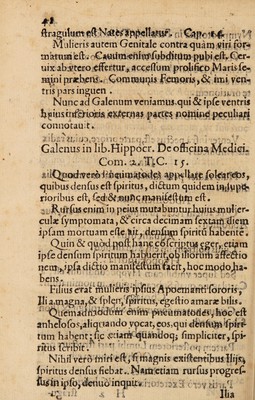 42
stragulum est Nates appellarus. Cap. 14.
Mulieris autem Genitale contra quàm viri for-
matum est. Cauum enim subditum pubi est. Cer-
uix ab vtero effertur, accessum prolifico Maris se-
mini præbens. Communis Femoris, & imi ven-
tris pars inguen.
Nunc ad Galenum veniamus qui & ipse ventris
huius inferioris externas partes nomine peculiari
connotaut.
Galenus in lib. Hippocr. De officina Medici.
Com. 2. T.C. 15.
Quod verò pneumatodes appellare solear eos,
quibus densus est spiritus, dictum quidem in supe-
rioribus est, sed & nunc manifestum est.
Rursus enim in peius mutabuntur huius mulier-
culæ symptomata, & circa decimam sextam diem
ipsam mortuam este ait, densum spiritũ habentẽ.
Quin & quòd post hanc conscriptus eger, etiam
ipse densum spiritum habuerit, ob illiorum affectio
nem, ipsa dictio manifestum facit, hoc modo ha-
bens.
Filius erat mulieris ipsius Apoemanti sororis,
Ilia magna, & splen, spiritus, egestio amaræ bilis.
Quemadmodum enim pneumatodes, hoc est
anhelosos, aliquando vocat, eos, qui densum spiri-
tum habent; sic etiam quandoq; simpliciter, spiri-
tus scribit.
Nihil verò miri est, si magnis existentibus Ilijs,
spiritus densus fiebat. Nam etiam rursus progres-
sus in ipso, denuò inquit.
H Ilia